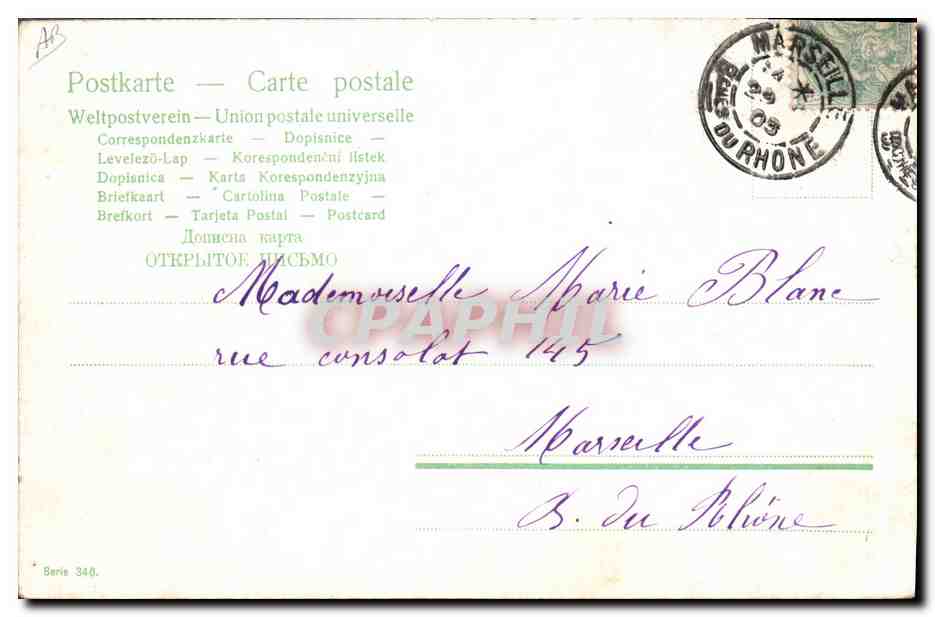 AB
Postkarte — Carte postale
Weltpostverein — Union postale universelle
Correspondenzkarte — Dopisnice —
Levelező-Lap — Korespondenční lístek
Dopisnica — Karta Korespondenzyjna
Briefkaart — Cartolina Postale —
Brefkort — Tarjeta Postal — Postcard
Дописна карта
ОТКРЫТОЕ ПИСЬМО
MARSEILLE
29
03
BCHES DU RHONE
Mademoiselle Marie Blanc
CPAPHIL
rue consolat 145
Marseille
B. du Rhône
Serie 346.